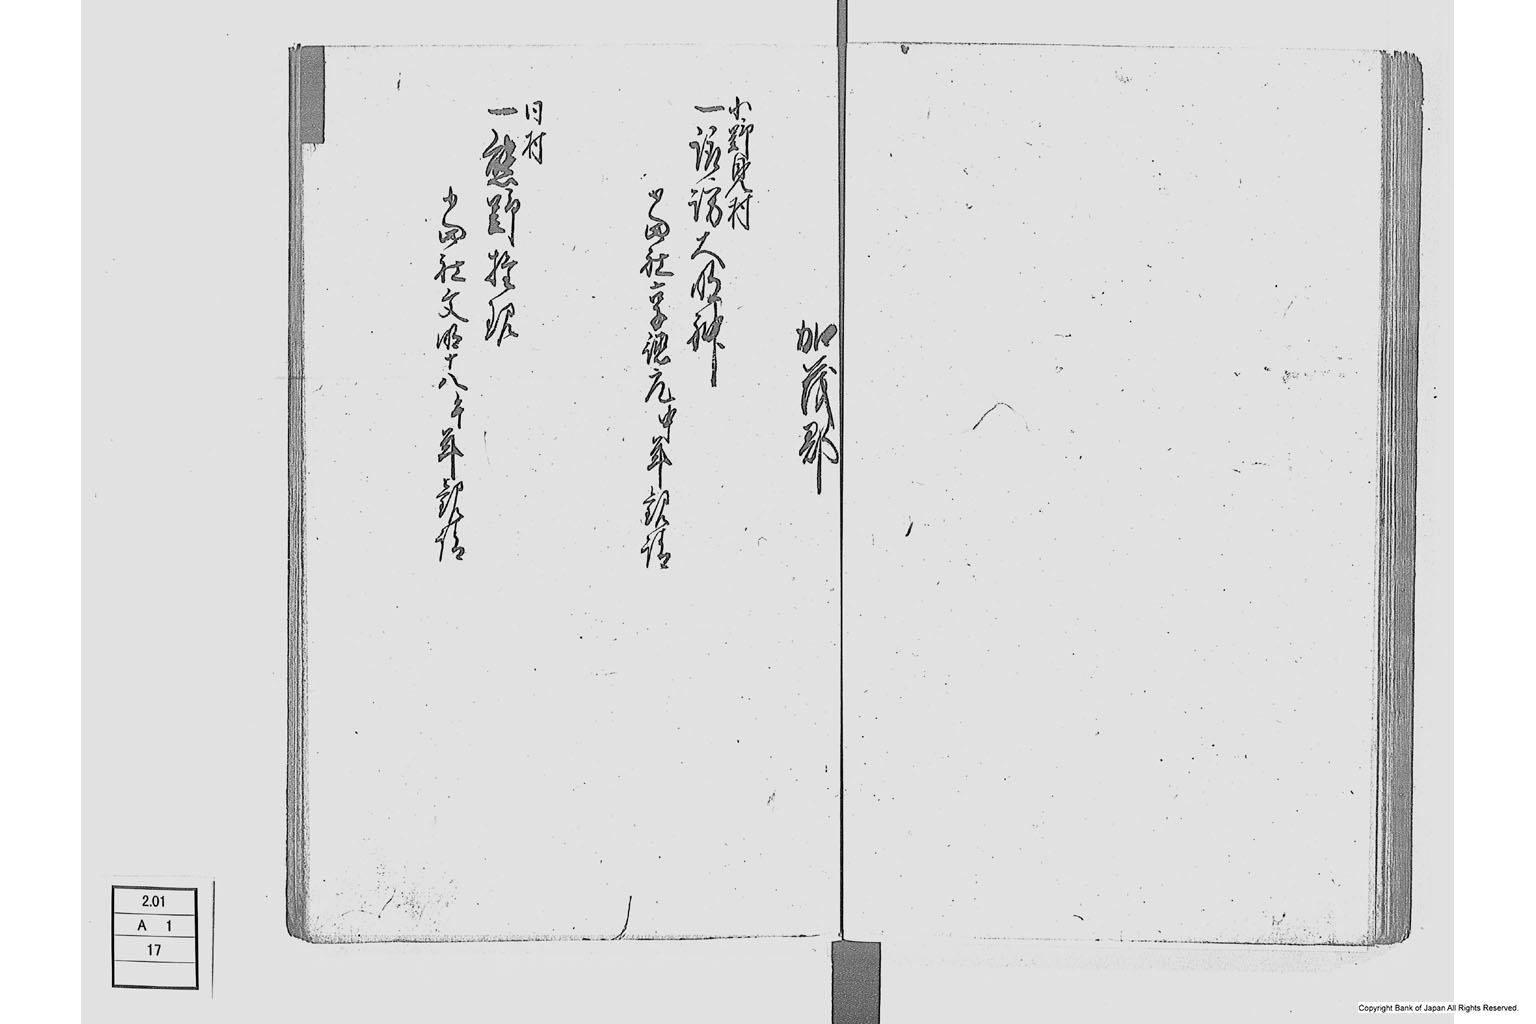 加茂郡
小野見村
一諏訪大明神
當社享徳元申年勧請
同村
一熊野権現
當社文明十八午年勧請
2.01
A 1
17
Copyright Bank of Japan All Rights Reserved.